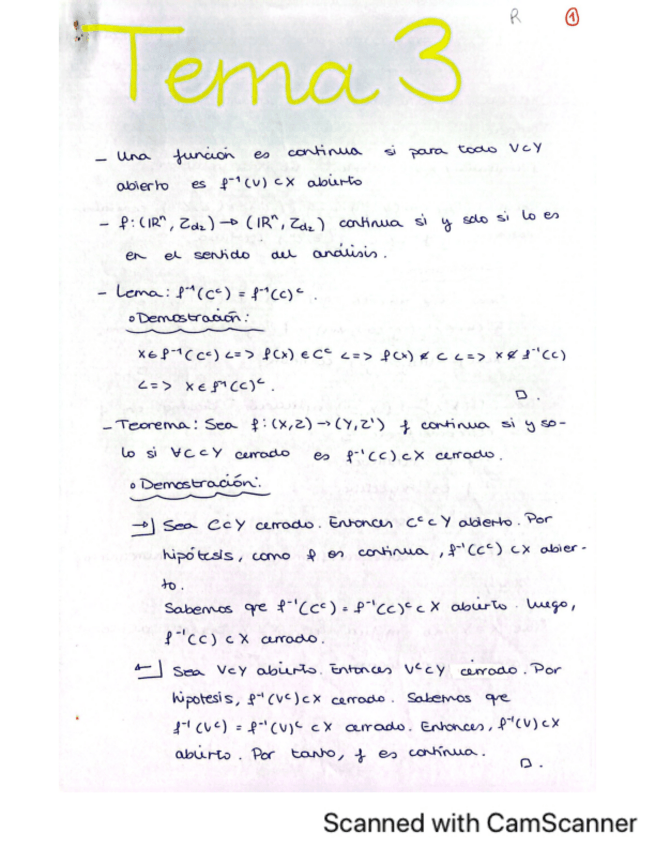 R ①
Tema 3
- Una función es continua si para todo V⊂Y
abierto es f⁻¹(V) ⊂ X abierto
- f: (ℝⁿ, τd₂) → (ℝⁿ, τd₂) continua si y solo si lo es
en el sentido del análisis.
- Lema: f⁻¹(Cᶜ) = f⁻¹(C)ᶜ.
• Demostración:
x∈f⁻¹(Cᶜ) <=> f(x)∈Cᶜ <=> f(x)∉C <=> x∉f⁻¹(C)
<=> x∈f⁻¹(C)ᶜ.
□.
- Teorema: Sea f: (X,τ)→(Y,τ') f continua si y so-
lo si ∀C⊂Y cerrado es f⁻¹(C)⊂X cerrado.
• Demostración:
→] Sea C⊂Y cerrado. Entonces Cᶜ⊂Y abierto. Por
hipótesis, como f es continua, f⁻¹(Cᶜ)⊂X abier-
to.
Sabemos que f⁻¹(Cᶜ) = f⁻¹(C)ᶜ⊂X abierto. Luego,
f⁻¹(C)⊂X cerrado.
←] Sea V⊂Y abierto. Entonces Vᶜ⊂Y cerrado. Por
hipotesis, f⁻¹(Vᶜ)⊂X cerrado. Sabemos que
f⁻¹(Vᶜ) = f⁻¹(V)ᶜ ⊂X cerrado. Entonces, f⁻¹(V)⊂X
abierto. Por tanto, f es continua.
□.
Scanned with CamScanner